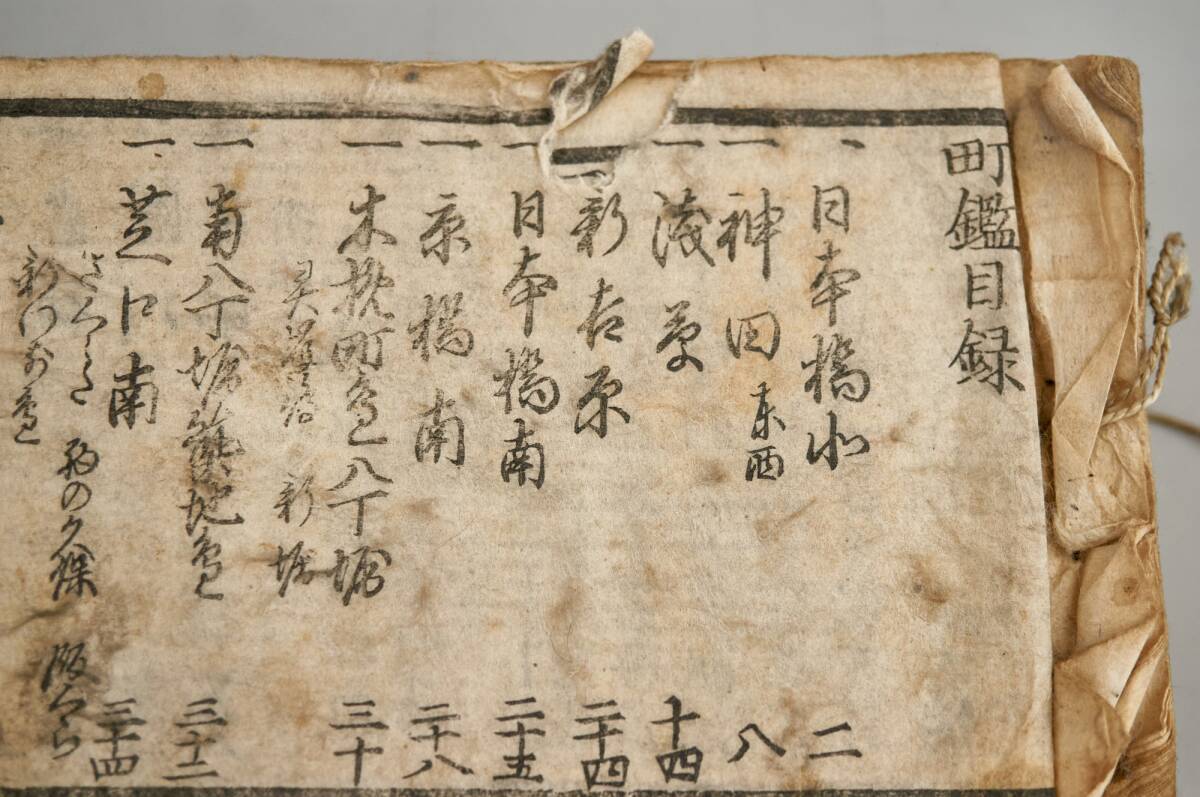 町鑑目録
一 日本橋北 二
一 神田 東西 八
一 浅草 十四
一 新吉原 二十四
一 日本橋南 二十五
一 京橋南 二十八
一 木挽町辺八丁堀 三十
霊岸嶋 新堀
一 南八丁堀築地辺 三十二
一 芝口南 三十四
西のくほ 飯くら